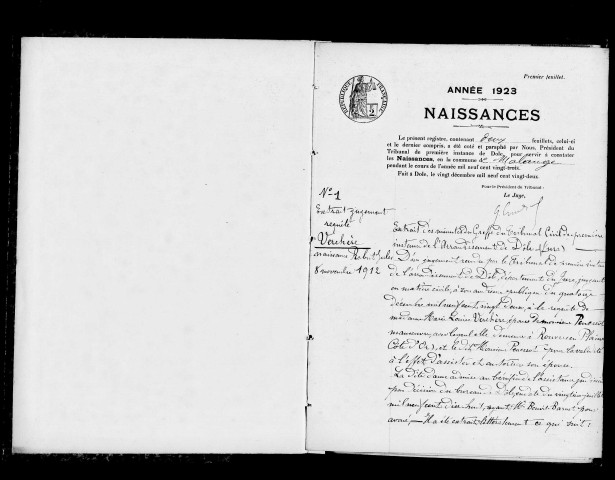 Premier feuillet.
RÉPUBLIQUE FRANÇAISE
2
ANNÉE 1923
NAISSANCES
Le présent registre, contenant deux feuillets, celui-ci
et le dernier compris, a été coté et paraphé par Nous, Président du
Tribunal de première instance de Dole, pour servir à constater
les Naissances, en la commune de Malange
pendant le cours de l'année mil neuf cent vingt-trois.
Fait à Dole, le vingt décembre mil neuf cent vingt-deux.
Pour le Président du Tribunal :
Le Juge,
N° 1
Extrait jugement
requête
Verchère
naissance Robert Jules
8 novembre 1912
Extrait des minutes du Greffe du Tribunal Civil de première
instance de l'Arrondissement de Dole (Jura)
D'un jugement rendu par le Tribunal de première instance
de l'arrondissement de Dole, département du Jura, jugeant
en matière civile, à son audience publique du quatorze
décembre mil neuf cent vingt deux, à la requête de
madame Marie Louise Verchère, épouse de monsieur
manœuvre, avec lequel elle demeure à Rouvres en Plaine
Côte d'Or), et le dit Monsieur pour la validité
à l'effet d'assister et autoriser son épouse.
La dite dame admise au bénéfice de l'assistance judiciaire
par décision du bureau de Dole, en date du vingt six juillet
mil neuf cent dix huit, ayant Me Benoit Barnet pour
avoué, Il a été extrait littéralement ce qui suit :